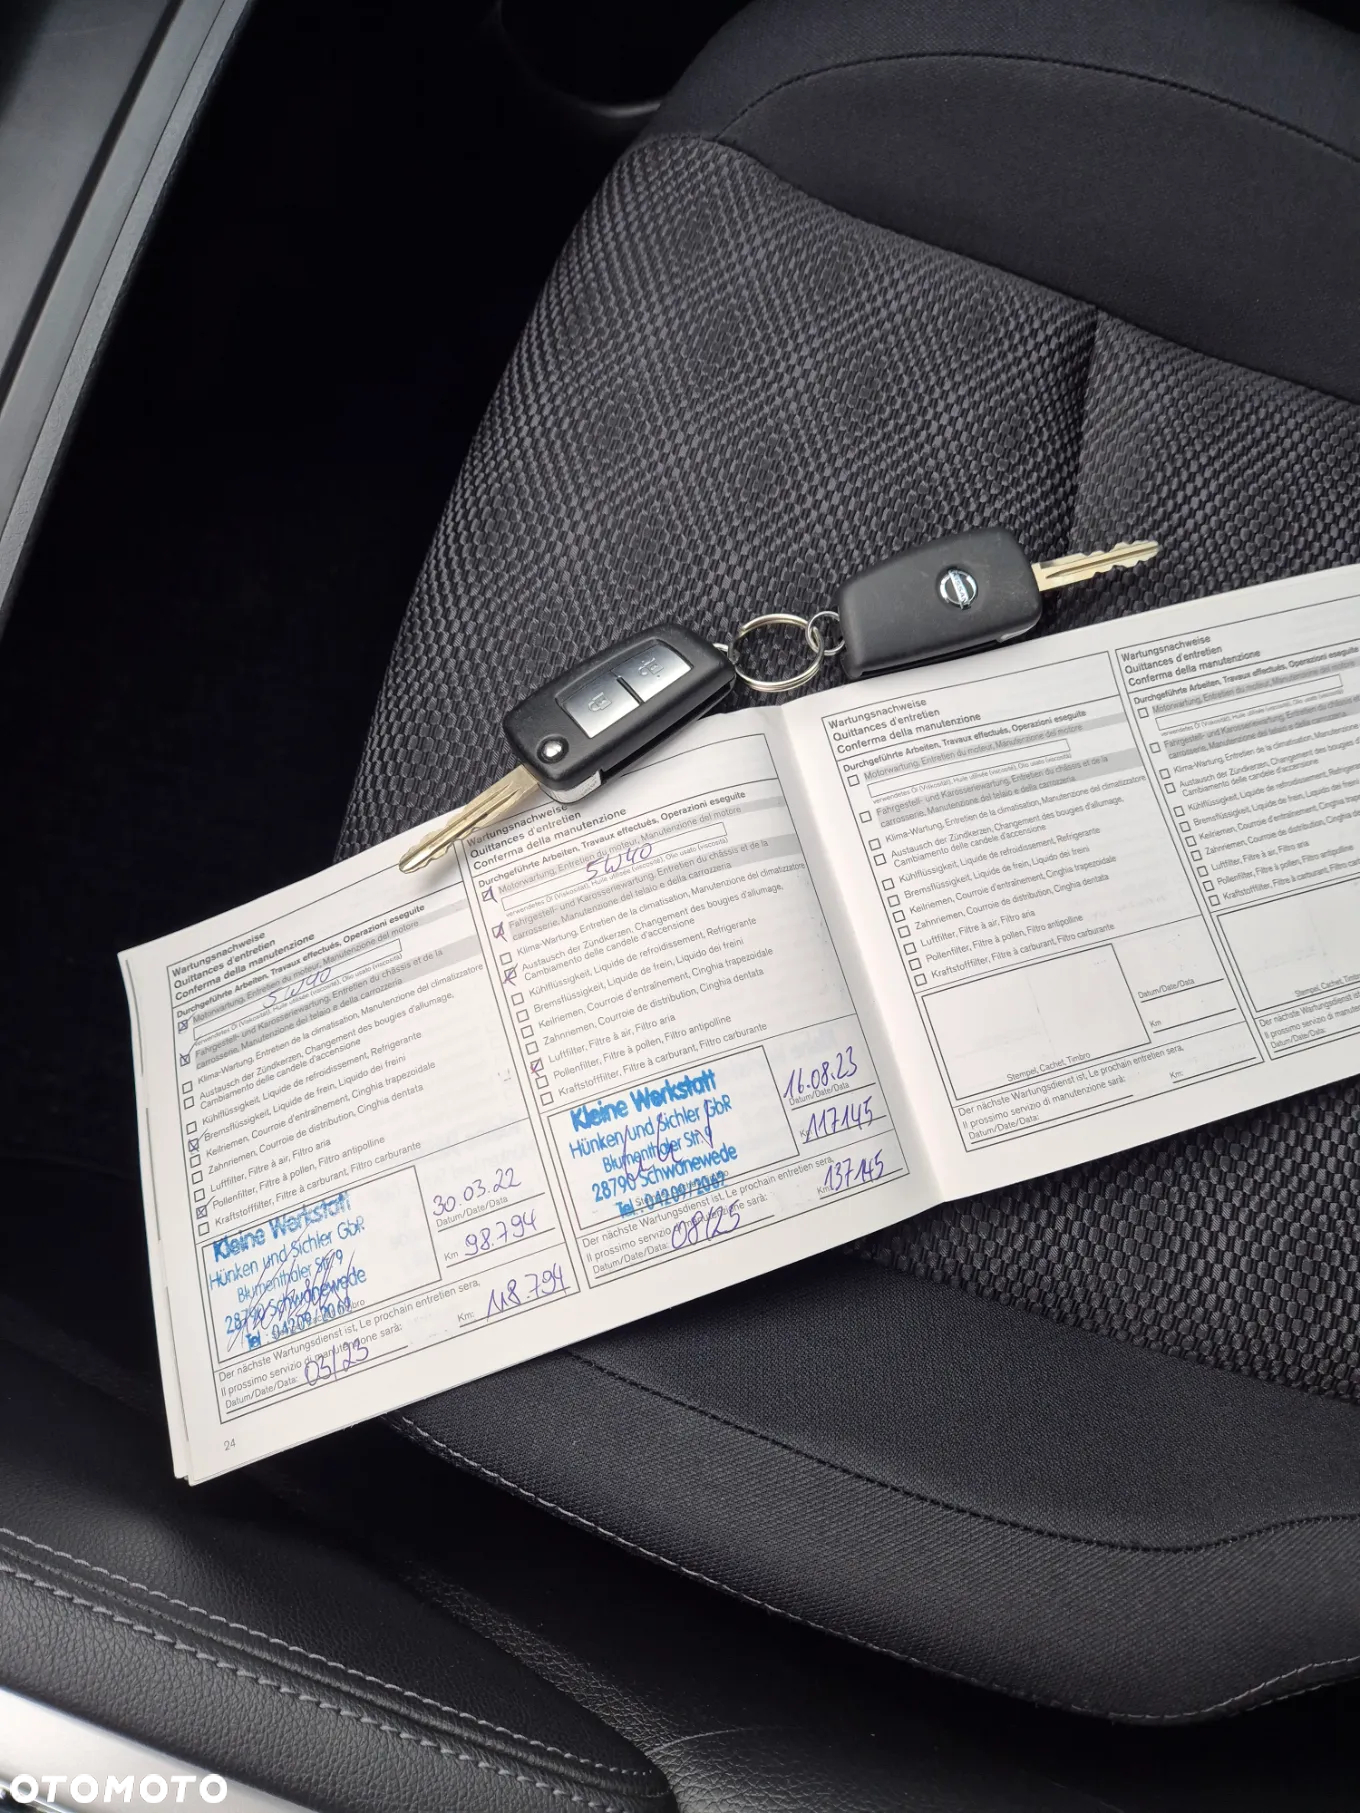 NISSAN
Wartungsnachweise
Quittances d'entretien
Conferma della manutenzione
Durchgeführte Arbeiten, Travaux effectués, Operazioni eseguite
Motorwartung, Entretien du moteur, Manutenzione del motore
5W40
verwendetes Öl (Viskosität), Huile utilisée (viscosité), Olio usato (viscosità)
Fahrgestell- und Karosseriewartung, Entretien du châssis et de la
carrosserie, Manutenzione del telaio e della carrozzeria
Klima-Wartung, Entretien de la climatisation, Manutenzione del climatizzatore
Austausch der Zündkerzen, Changement des bougies d'allumage,
Cambiamento delle candele d'accensione
Kühlflüssigkeit, Liquide de refroidissement, Refrigerante
Bremsflüssigkeit, Liquide de frein, Liquido dei freini
Keilriemen, Courroie d'entraînement, Cinghia trapezoidale
Zahnriemen, Courroie de distribution, Cinghia dentata
Luftfilter, Filtre à air, Filtro aria
Pollenfilter, Filtre à pollen, Filtro antipolline
Kraftstofffilter, Filtre à carburant, Filtro carburante
Kleine Werkstatt
Hünken und Sichler GbR
Blumenthaler Str. 9
28790 Schwanewede
Tel.: 04209/2069
30.03.22
Datum/Date/Data
Km 98.794
Der nächste Wartungsdienst ist, Le prochain entretien sera,
Il prossimo servizio di manutenzione sarà:
Datum/Date/Data: 03/23
Km: 118.794
24
Wartungsnachweise
Quittances d'entretien
Conferma della manutenzione
Durchgeführte Arbeiten, Travaux effectués, Operazioni eseguite
Motorwartung, Entretien du moteur, Manutenzione del motore
5W40
verwendetes Öl (Viskosität), Huile utilisée (viscosité), Olio usato (viscosità)
Fahrgestell- und Karosseriewartung, Entretien du châssis et de la
carrosserie, Manutenzione del telaio e della carrozzeria
Klima-Wartung, Entretien de la climatisation, Manutenzione del climatizzatore
Austausch der Zündkerzen, Changement des bougies d'allumage,
Cambiamento delle candele d'accensione
Kühlflüssigkeit, Liquide de refroidissement, Refrigerante
Bremsflüssigkeit, Liquide de frein, Liquido dei freini
Keilriemen, Courroie d'entraînement, Cinghia trapezoidale
Zahnriemen, Courroie de distribution, Cinghia dentata
Luftfilter, Filtre à air, Filtro aria
Pollenfilter, Filtre à pollen, Filtro antipolline
Kraftstofffilter, Filtre à carburant, Filtro carburante
Kleine Werkstatt
Hünken und Sichler GbR
Blumenthaler Str. 9
28790 Schwanewede
Tel.: 04209/2069
16.08.23
Datum/Date/Data
Km 117145
Der nächste Wartungsdienst ist, Le prochain entretien sera,
Il prossimo servizio di manutenzione sarà:
Datum/Date/Data: 08/25
Km: 137145
Wartungsnachweise
Quittances d'entretien
Conferma della manutenzione
Durchgeführte Arbeiten, Travaux effectués, Operazioni eseguite
Motorwartung, Entretien du moteur, Manutenzione del motore
verwendetes Öl (Viskosität), Huile utilisée (viscosité), Olio usato (viscosità)
Fahrgestell- und Karosseriewartung, Entretien du châssis et de la
carrosserie, Manutenzione del telaio e della carrozzeria
Klima-Wartung, Entretien de la climatisation, Manutenzione del climatizzatore
Austausch der Zündkerzen, Changement des bougies d'allumage,
Cambiamento delle candele d'accensione
Kühlflüssigkeit, Liquide de refroidissement, Refrigerante
Bremsflüssigkeit, Liquide de frein, Liquido dei freini
Keilriemen, Courroie d'entraînement, Cinghia trapezoidale
Zahnriemen, Courroie de distribution, Cinghia dentata
Luftfilter, Filtre à air, Filtro aria
Pollenfilter, Filtre à pollen, Filtro antipolline
Kraftstofffilter, Filtre à carburant, Filtro carburante
Stempel, Cachet, Timbro
Datum/Date/Data
Km
Der nächste Wartungsdienst ist, Le prochain entretien sera,
Il prossimo servizio di manutenzione sarà:
Datum/Date/Data:
Km:
Wartungsnachweise
Quittances d'entretien
Conferma della manutenzione
Durchgeführte Arbeiten, Travaux effectués, Operazioni eseguite
Motorwartung, Entretien du moteur, Manutenzione del motore
verwendetes Öl (Viskosität), Huile utilisée (viscosité), Olio usato (viscosità)
Fahrgestell- und Karosseriewartung, Entretien du
carrosserie, Manutenzione del telaio e della
Klima-Wartung, Entretien de la climatisation, Manutenz
Austausch der Zündkerzen, Changement des bougies d'
Cambiamento delle candele d'accensione
Kühlflüssigkeit, Liquide de refroidissement, Refrigera
Bremsflüssigkeit, Liquide de frein, Liquido dei freini
Keilriemen, Courroie d'entraînement, Cinghia trape
Zahnriemen, Courroie de distribution, Cinghia dent
Luftfilter, Filtre à air, Filtro aria
Pollenfilter, Filtre à pollen, Filtro antipolline
Kraftstofffilter, Filtre à carburant, Filtro carbu
Stempel, Cachet, Timb
Der nächste Wartungsdienst ist, Le p
Il prossimo servizio di manutenzione
Datum/Date/Data:
OTOMOTO